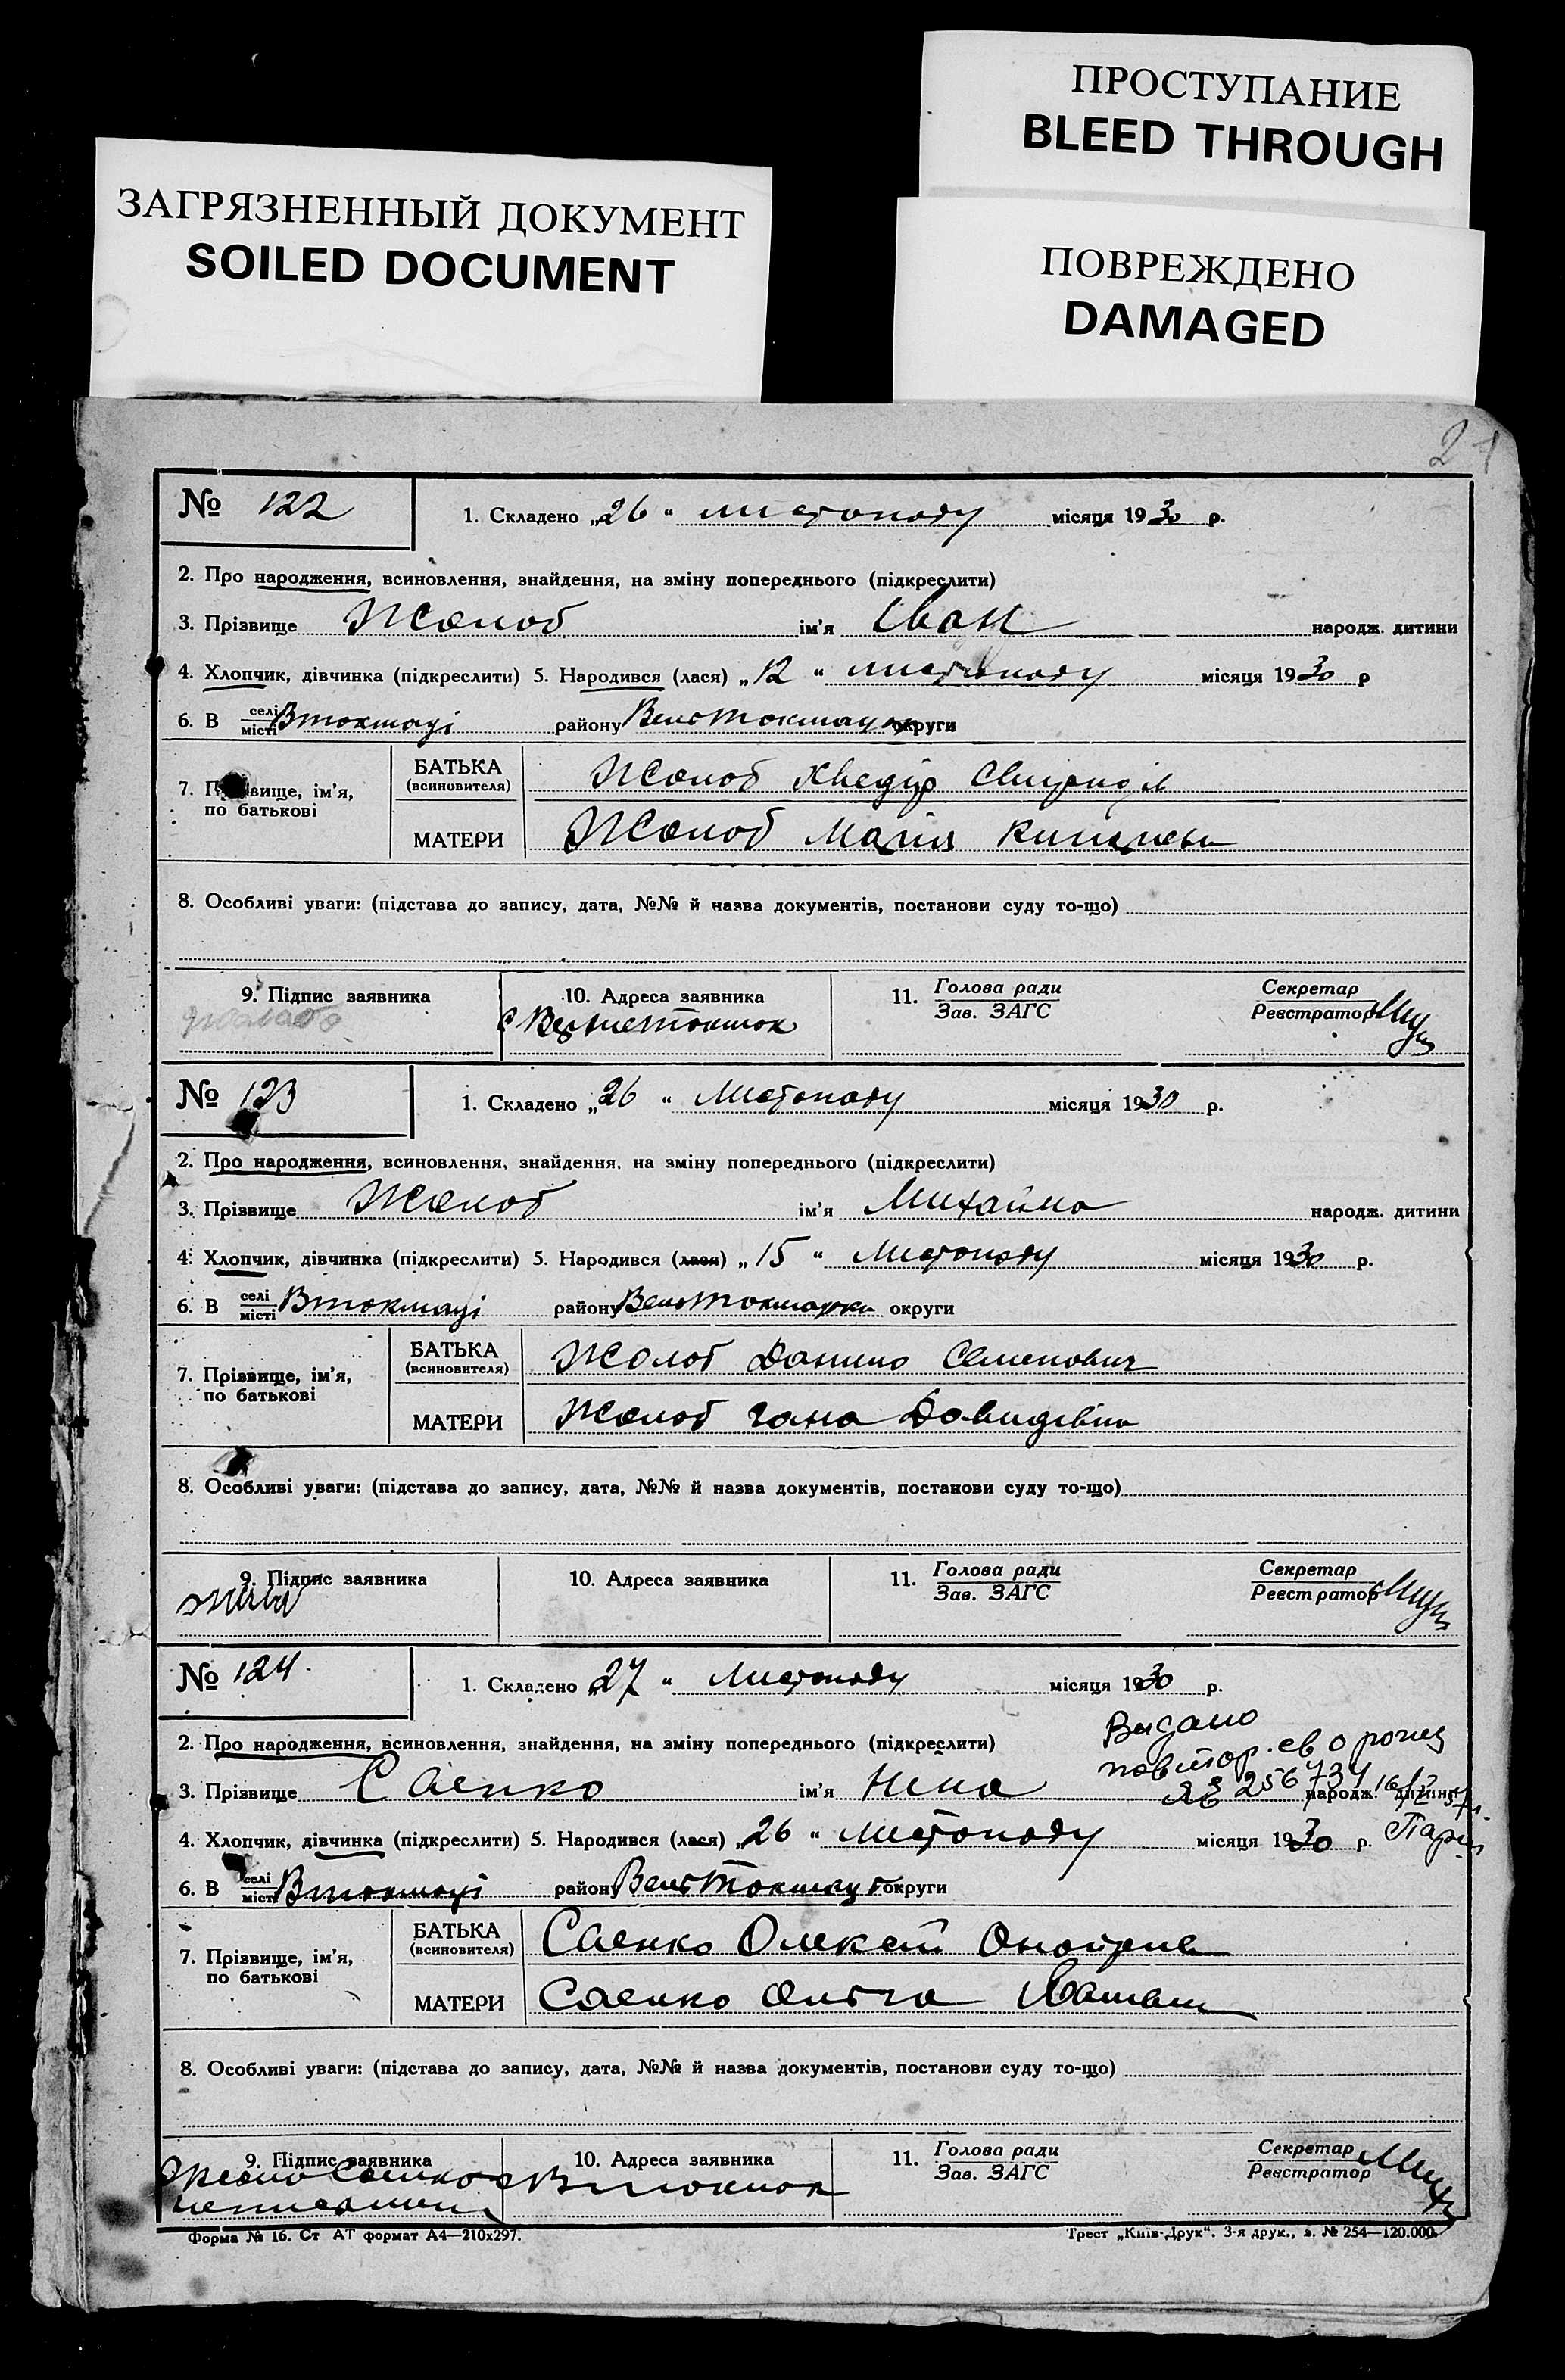 ПРОСТУПАНИЕ
BLEED THROUGH
ЗАГРЯЗНЕННЫЙ ДОКУМЕНТ
SOILED DOCUMENT
ПОВРЕЖДЕНО
DAMAGED
№ 122
1. Складено „26“ листопаду місяця 1930 р.
2. Про народження, всиновлення, знайдення, на зміну попереднього (підкреслити)
3. Прізвище Жолоб ім'я Іван народж. дитини
4. Хлопчик, дівчинка (підкреслити) 5. Народився (лася) „12“ листопаду місяця 1930 р
6. В селі місті Втокмаці району округи
7. Прізвище, ім'я, по батькові
БАТЬКА (всиновителя) Жолоб Хведір
МАТЕРИ Жолоб Марія
8. Особливі уваги: (підстава до запису, дата, №№ й назва документів, постанови суду то-що)
9. Підпис заявника 10. Адреса заявника 11. Голова ради Зав. ЗАГС Секретар Реєстратор
№ 123
1. Складено „26“ Листопаду місяця 1930 р.
2. Про народження, всиновлення, знайдення, на зміну попереднього (підкреслити)
3. Прізвище Жолоб ім'я Михайло народж. дитини
4. Хлопчик, дівчинка (підкреслити) 5. Народився (лася) „15“ Листопаду місяця 1930 р.
6. В селі місті Втокмаці району округи
7. Прізвище, ім'я, по батькові
БАТЬКА (всиновителя) Жолоб Данило Семенович
МАТЕРИ Жолоб Гана Давидівна
8. Особливі уваги: (підстава до запису, дата, №№ й назва документів, постанови суду то-що)
9. Підпис заявника 10. Адреса заявника 11. Голова ради Зав. ЗАГС Секретар Реєстратор
№ 124
1. Складено „27“ Листопаду місяця 1930 р.
Видано
2. Про народження, всиновлення, знайдення, на зміну попереднього (підкреслити)
повтор. св о
3. Прізвище Саенко ім'я Нина 256734 народж. дитини
4. Хлопчик, дівчинка (підкреслити) 5. Народився (лася) „26“ листопаду місяця 1930 р.
6. В селі місті Втокмаці району округи
7. Прізвище, ім'я, по батькові
БАТЬКА (всиновителя) Саенко Олексій
МАТЕРИ Саенко Ольга
8. Особливі уваги: (підстава до запису, дата, №№ й назва документів, постанови суду то-що)
9. Підпис заявника 10. Адреса заявника 11. Голова ради Зав. ЗАГС Секретар Реєстратор
Форма № 16. Ст АТ формат А4—210х297.
Трест „Київ-Друк“. 3-я друк., з. № 254—120.000.